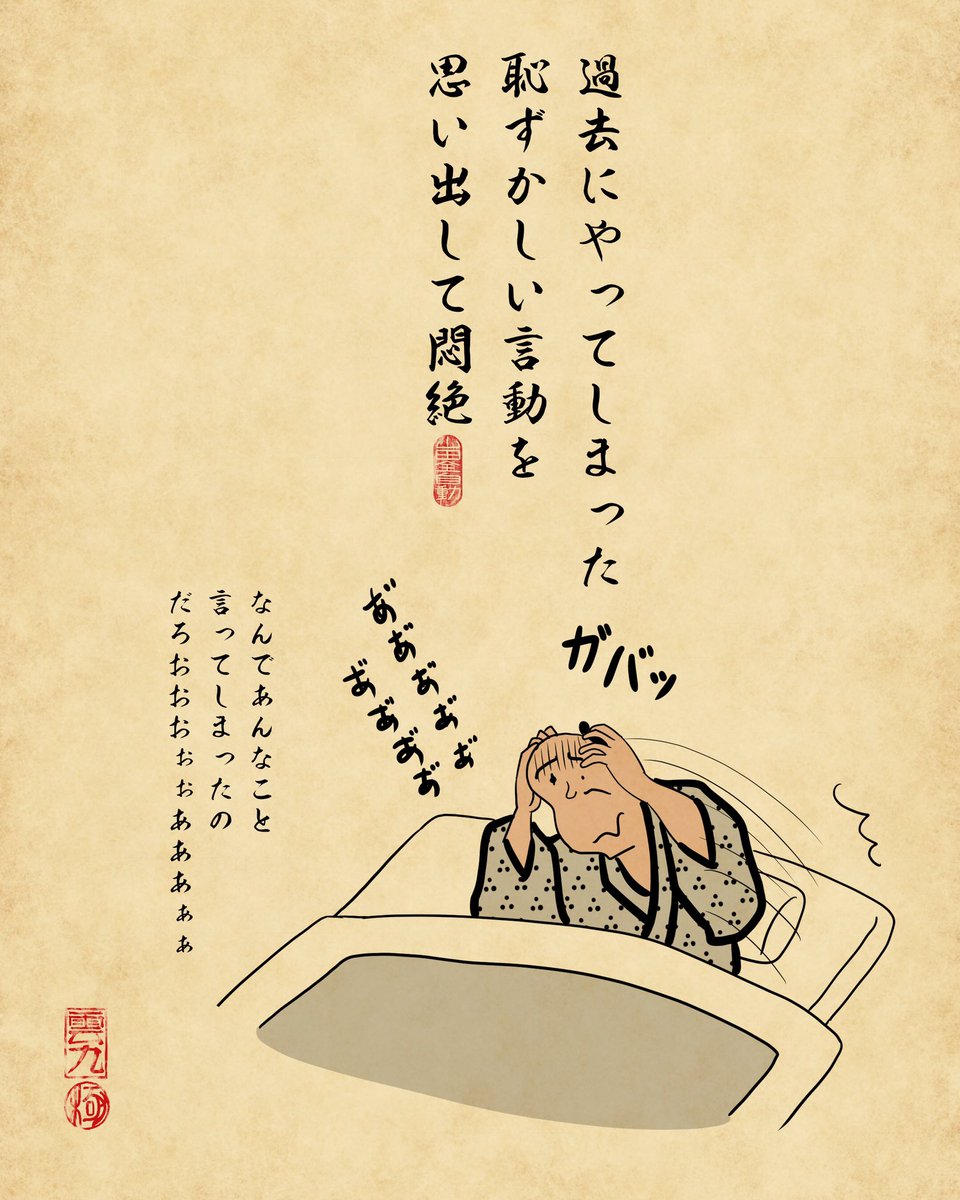 過去にやってしまった
恥ずかしい言動を
思い出して悶絶
山田全自動
ガバッ
あ゛あ゛あ゛あ゛ぁ゛
あ゛あ゛あ゛あ゛
なんであんなこと
言ってしまったの
だろおおおぉぉあああぁぁ